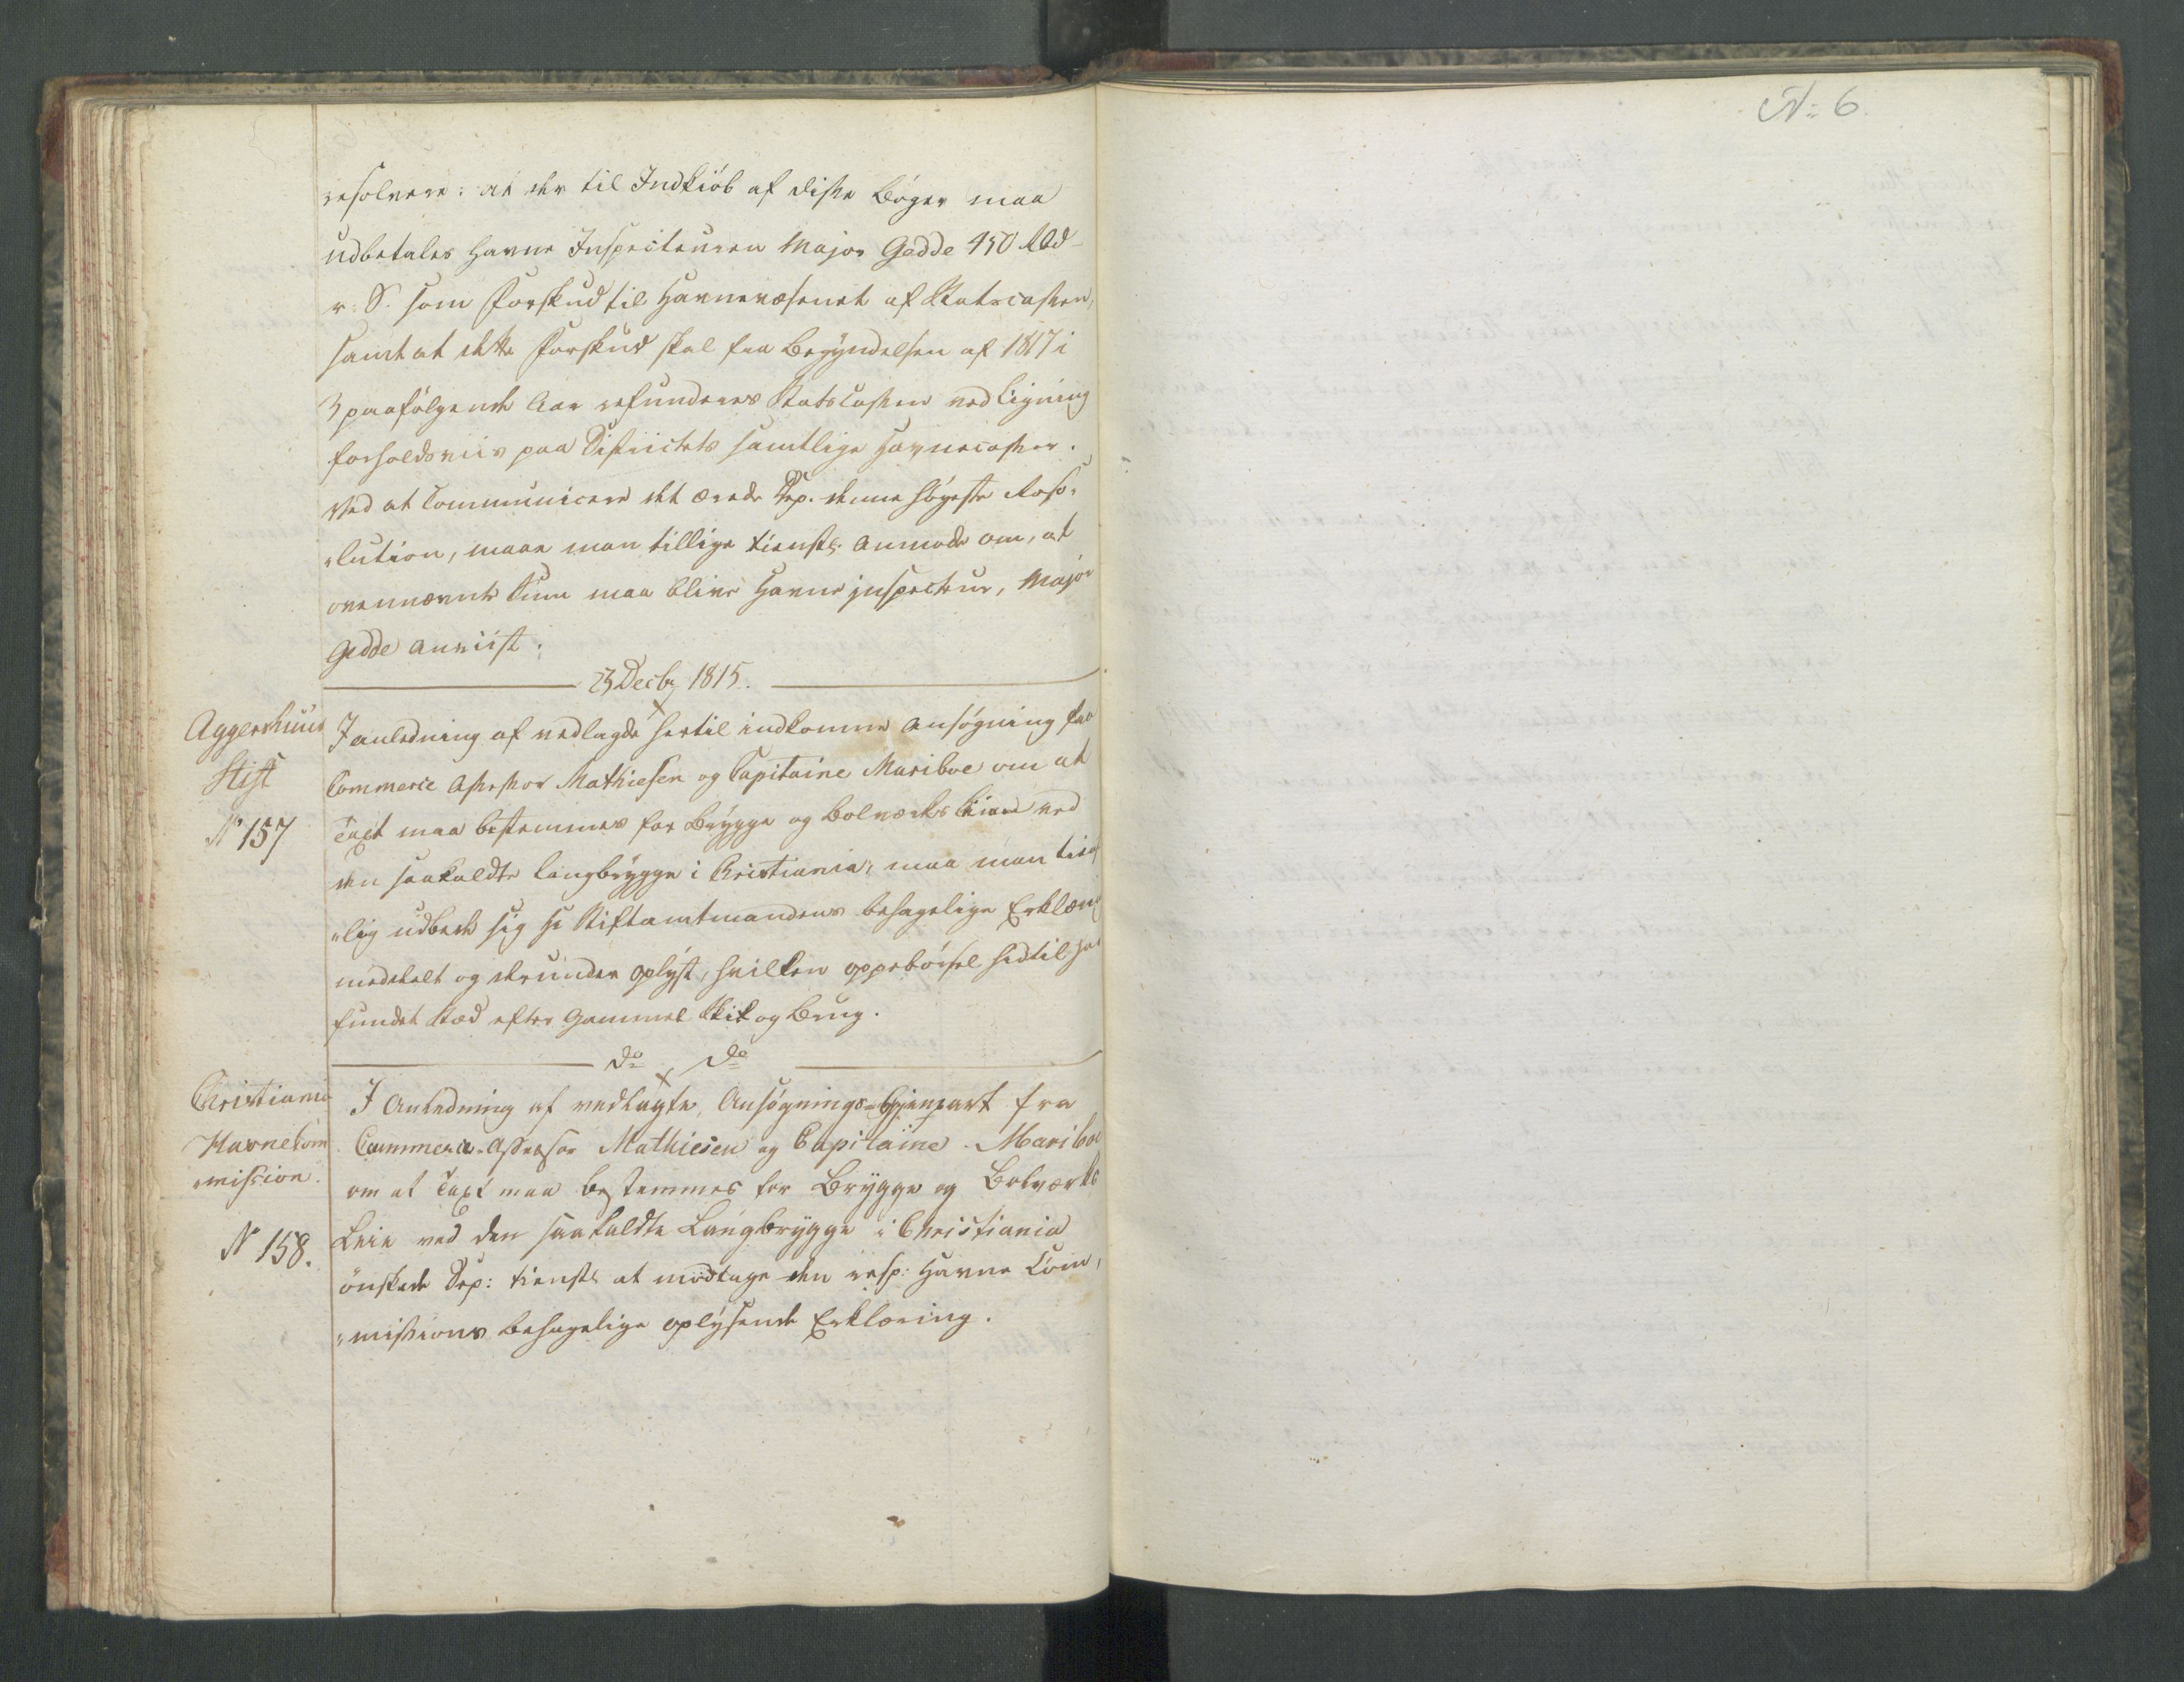 resolvere: at der til Indkiöb af disse Bøger maa
udbetales Havne Inspecteuren Major Gedde 450 Rbd
r: S. som Forskud til Havnevæsenet af Statscassen,
samt at dette Forskud skal fra Begyndelsen af 1817 i
3 paafølgende Aar refunderes Statscassen ved Ligning
forholdsviis paa Districtets samtlige Havnecasser.
Ved at Communicere det ærede Dep. denne høyeste Reso„
„lution, maae man tillige tienstl. anmode om, at
ovennævnte Sum maa blive Havneinspecteur, Major
Gedde anviist.
23 Decbr 1815.
Aggershuus
Stift
N° 157
I anledning af vedlagde hertil indkomne Ansøgning fra
Commerce Assessor Mathiesen og Capitaine Mariboe om at
Taxt maa bestemmes for Brygge og Bolværks Leie ved
den saakaldte Langbrygge i Christiania, maa man
„lig udbede sig Hr Stiftamtmandens behagelige Erklæring
meddeelt og derunder oplyst, hvilken oppebørsel hidtil har
fundet Sted efter Gammel Skik og Brug.
Do Do
Christiania
Havnekom
„mission.
N° 158.
I Anledning af vedlagte Ansøgnings-Gjenpart fra
Commerce-Assessor Mathiesen og Capitaine Mariboe
om at Taxt maa bestemmes for Brygge og Bolværks
Leie ved den saakaldte Langbrygge i Christiania
önskede Dep: tienstl at modtage den resp: Havne Com„
„missions behagelige oplysende Erklæring.
N: 6.